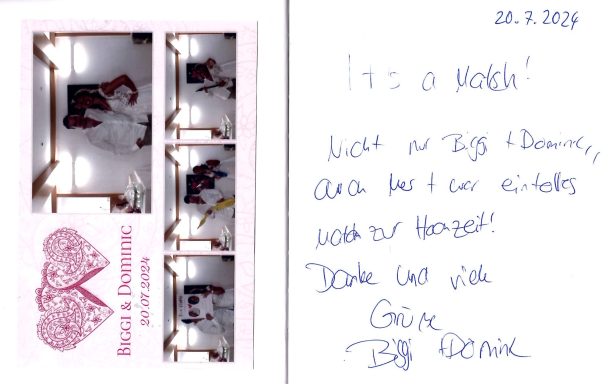 BIGGI & DOMINIC
20.07.2024
20.7.2024
It's a Match!
Nicht nur Biggi + Dominic,
auch + war ein tolles
Match zur Hochzeit!
Danke und viele
Grüße
Biggi + Dominic